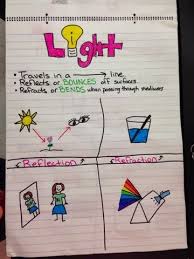 Light
• Travels in a → line.
• Reflects or BOUNCES off surfaces.
• Refracts or BENDS when passing through mediums
Reflection Refraction